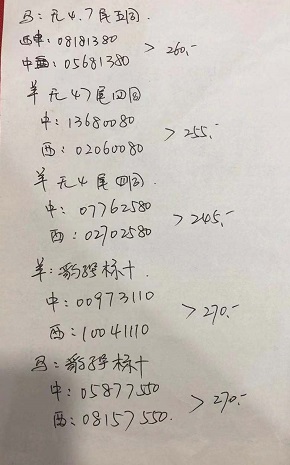 马:无4.7尾五同.
西中:08181380
中西:05681380
> 260.-
羊 无47尾四同
中:13680080
西:02060080
> 255.-
羊 无4尾四同.
中:07762580
西:02702580
> 245.-
羊:豹子号标十.
中:00973110
西:10041110
> 270.-
马:豹子号标十
中:05877550
西:08157550.
> 270.-